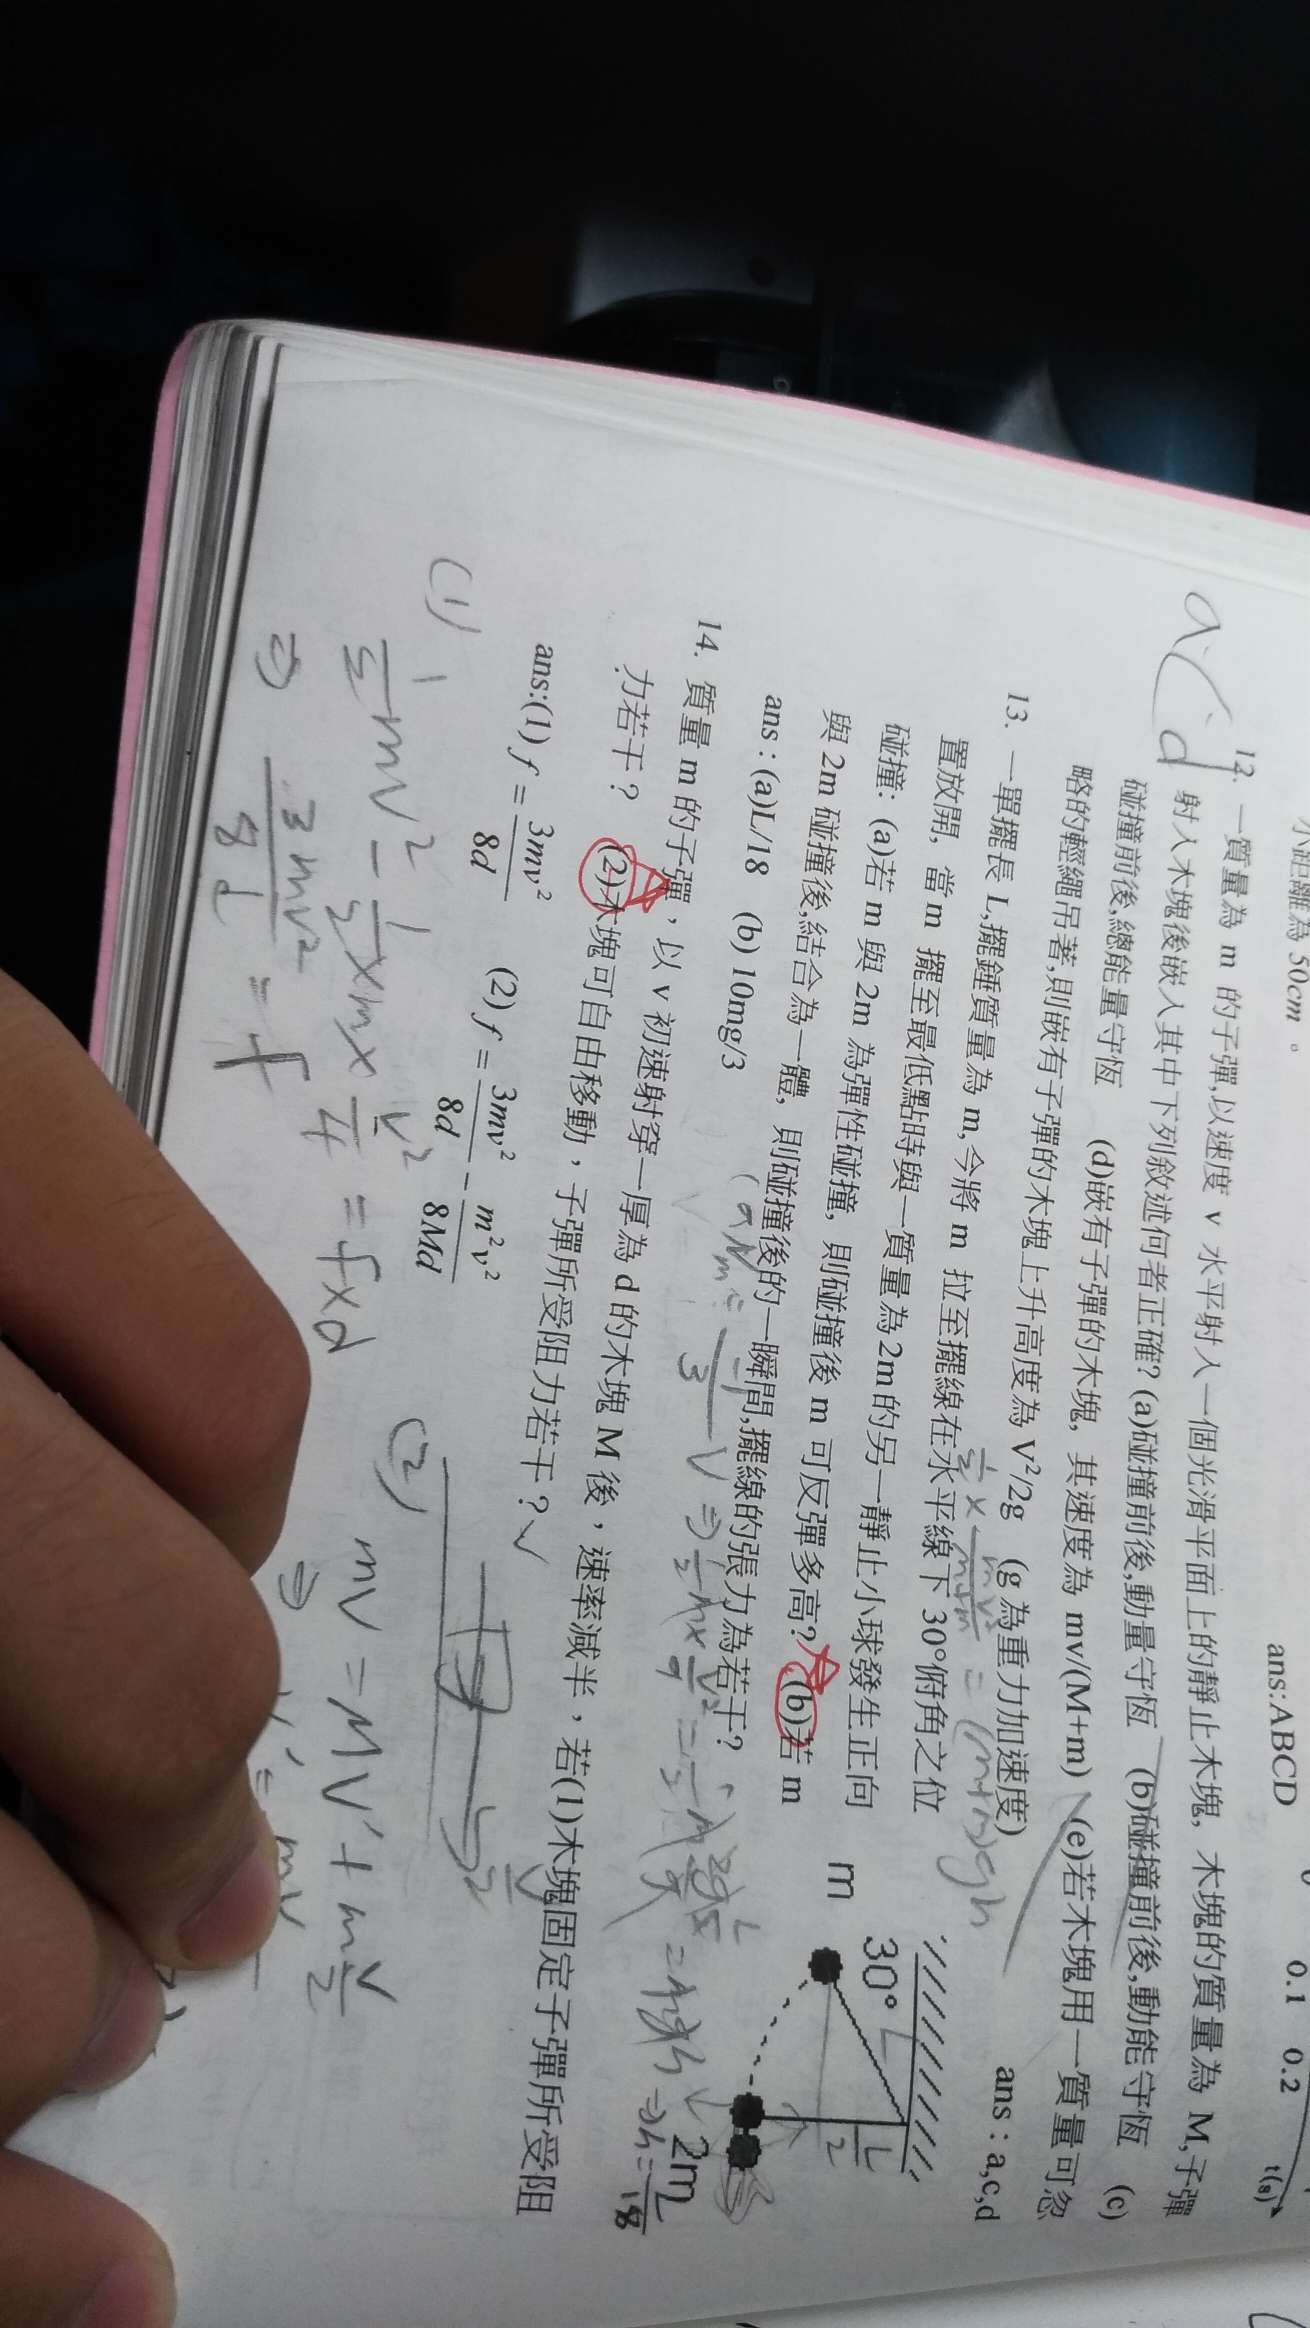 小距離為 50cm。
ans:ABCD
0.1 0.2
t(s)
a c d
12. 一質量為 m 的子彈,以速度 v 水平射入一個光滑平面上的靜止木塊, 木塊的質量為 M,子彈
射入木塊後嵌入其中下列敘述何者正確? (a)碰撞前後,動量守恆 (b)碰撞前後,動能守恆 (c)
碰撞前後,總能量守恆 (d)嵌有子彈的木塊, 其速度為 mv/(M+m) (e)若木塊用一質量可忽
略的輕繩吊著,則嵌有子彈的木塊上升高度為 V²/2g (g 為重力加速度) ans : a,c,d
13. 一單擺長 L,擺錘質量為 m,今將 m 拉至擺線在水平線下 30°俯角之位
置放開, 當 m 擺至最低點時與一質量為2m的另一靜止小球發生正向
碰撞: (a)若 m 與 2m 為彈性碰撞, 則碰撞後 m 可反彈多高? (b)若 m
與 2m 碰撞後,結合為一體, 則碰撞後的一瞬間,擺線的張力為若干?
ans : (a)L/18 (b) 10mg/3
30°
L
m
L/2
2m
14. 質量 m 的子彈,以 v 初速射穿一厚為 d 的木塊 M 後,速率減半,若(1)木塊固定子彈所受阻
力若干? (2)木塊可自由移動,子彈所受阻力若干?✓
ans:(1) f = 3mv²/8d (2) f = 3mv²/8d - m²v²/8Md
(1) 1/2 mv² - 1/2 × m × v²/4 = f×d
⇒ 3mv²/8d = f
(2) v/2
mv = MV' + m v/2
⇒ V' = mv